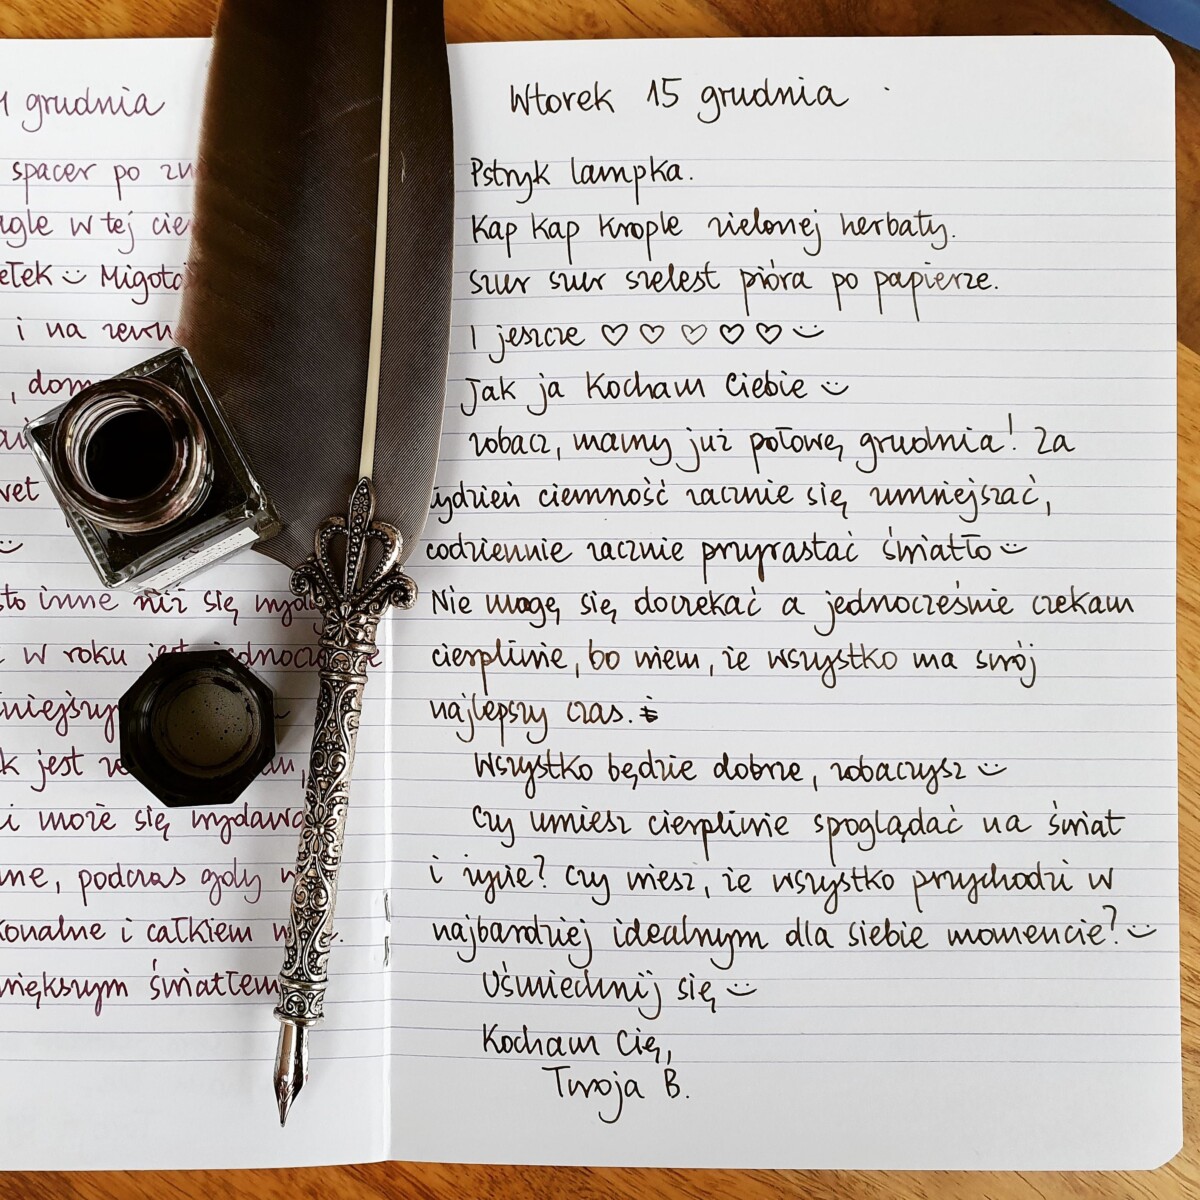 grudnia
spacer po
w tej
i na
sto inne niż się
w roku jest jednocześnie
k jest
i może się
, podczas gdy
i całkiem
większym światłem
Wtorek 15 grudnia
Pstryk lampka.
Kap kap krople zielonej herbaty.
Szur szur szelest pióra po papierze.
I jeszcze ♡ ♡ ♡ ♡ ♡ :)
Jak ja Kocham Ciebie :)
Zobacz, mamy już połowę grudnia! Za
tydzień ciemność zacznie się umniejszać,
codziennie zacznie przyrastać światło :)
Nie mogę się doczekać a jednocześnie czekam
cierpliwie, bo wiem, że wszystko ma swój
najlepszy czas.
Wszystko będzie dobrze, zobaczysz :)
Czy umiesz cierpliwie spoglądać na świat
i życie? Czy wiesz, że wszystko przychodzi w
najbardziej idealnym dla siebie momencie? :)
Uśmiechnij się :)
Kocham Cię,
Twoja B.